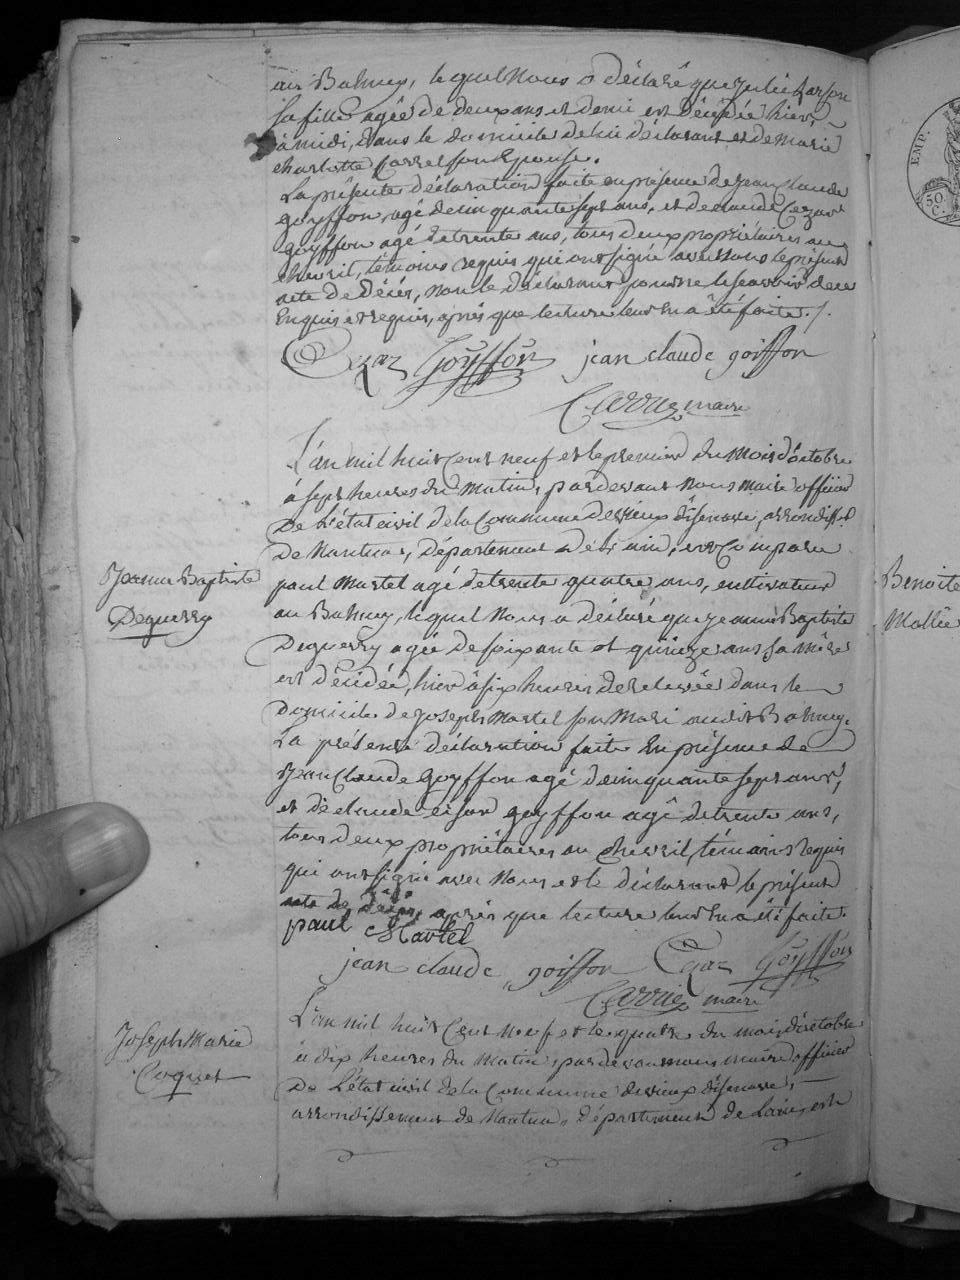 au Balmey, lequel Nous a déclaré que Julie
sa fille agée de deux ans et demi est décédée hier
à midi, dans le domicile de lui déclarant et de Marie
charlotte Carrel son Epouse.
La présente déclaration faite en présence de Jean Claude
goyffon, agé de cinquante sept ans, et de claude Cezar
goyffon agé de trente ans, tous deux propriétaires au
chevril, témoins requis qui ont signé avec Nous le présent
acte de Décès, non le déclarant pour ne le scavoir de ce
Enquis et requis, après que lecture leur En a été faite ./.
Cezar Goyffon jean claude goiffon
maire
L'an mil huit Cent neuf et le premier du Mois d'octobre
à sept heures du Matin, pardevant Nous maire officier
De L'état civil de la Commune de vieux disenave, arrondisst
De Nantua, Département de l'ain, est Comparu
paul Martel agé de trente quatre ans, cultivateur
au Balmey, lequel Nous a déclaré que jeanne Baptiste
Deguerry agée de soixante et quinze ans sa Mère
est décédée, hier à six heures de relevée dans le
Domicile de joseph Martel son Mari audit Balmey.
La présente déclaration faite En présence de
Jean Claude Goyffon agé de cinquante sept ans,
et de claude cesar goyffon agé de trente ans,
tous deux propriétaires au Chevril, témoins requis
qui ont signé avec Nous et le déclarant le présent
acte de décès, après que lecture leur En a été faite.
paul Martel
jean claude goiffon Cezar Goyffon
maire
L'an mil huit Cent Neuf et le quatre du mois d'octobre
à dix heures du Matin, pardevant nous maire officier
De L'état civil de la Commune de vieux disenave,
arrondissement de Nantua, département de L'ain, est
Jeanne Baptiste
Deguerry
Joseph Marie
Coquet
EMP.
50.
C.
Benoite